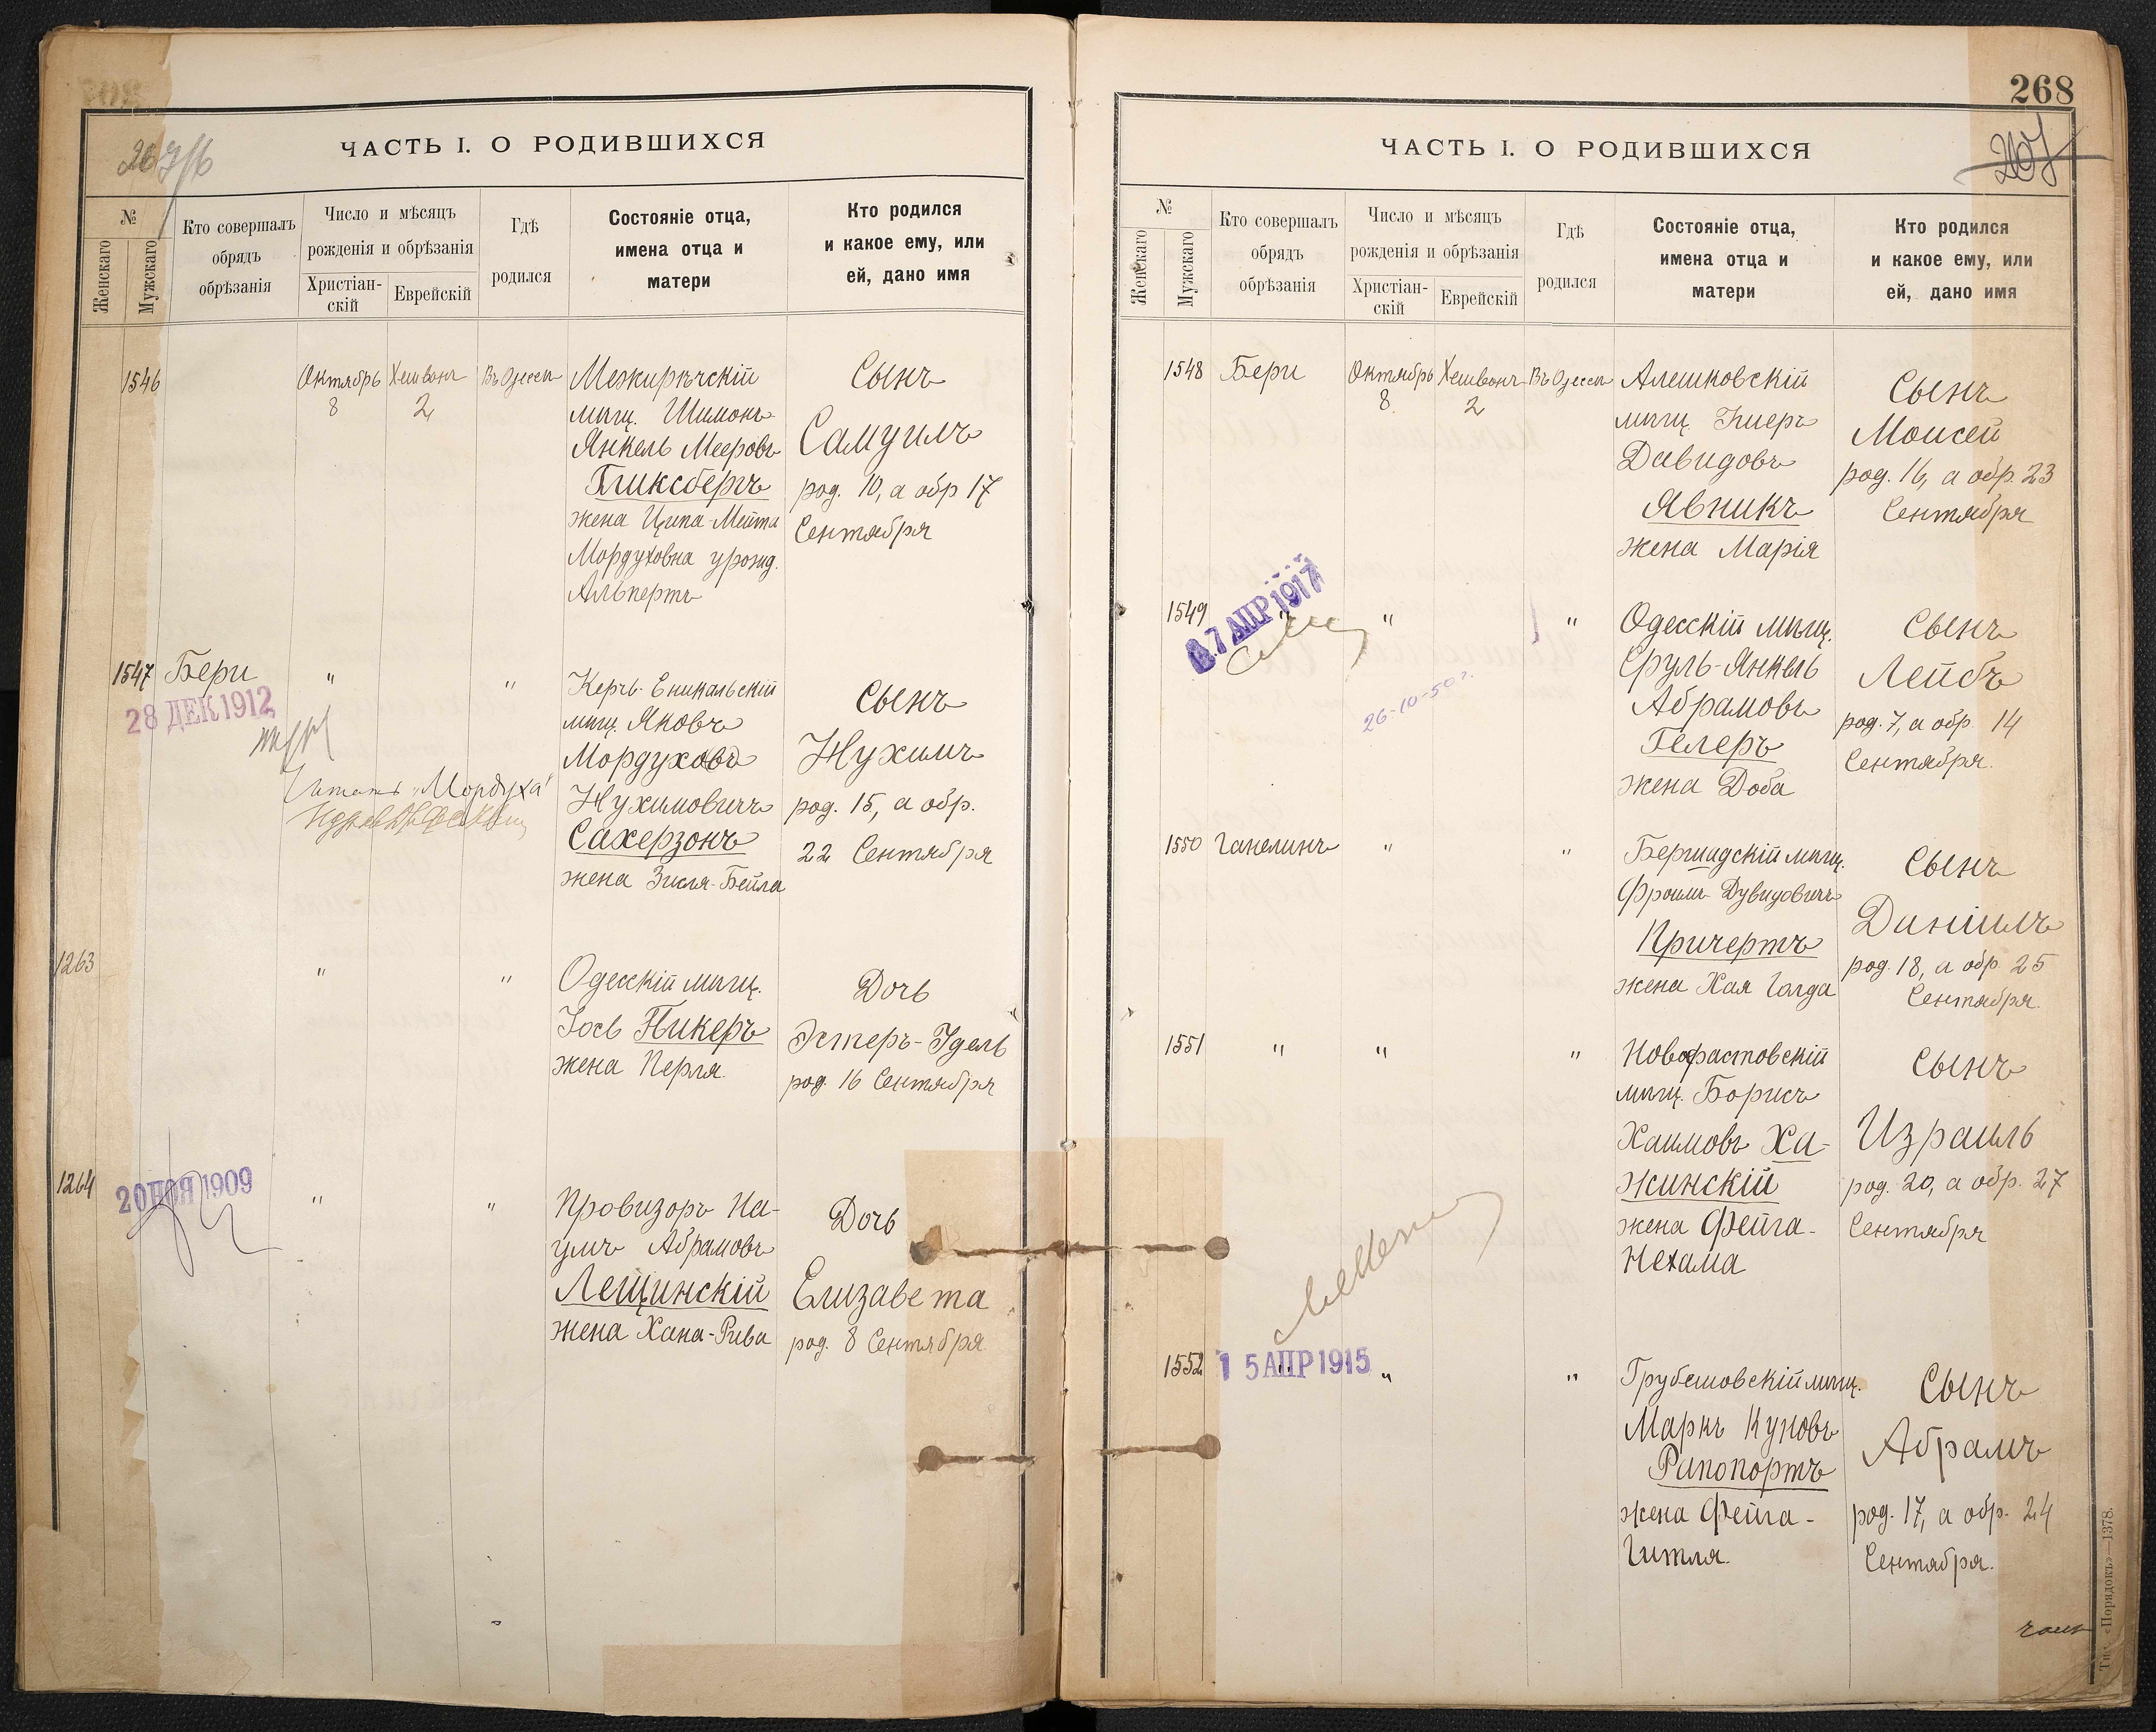 ЧАСТЬ I. О РОДИВШИХСЯ
№
Женскаго
Мужскаго
Кто совершалъ
обрядъ
обрѣзанія
Число и мѣсяцъ
рожденія и обрѣзанія
Христіан-
скій
Еврейскій
Гдѣ
родился
Состояніе отца,
имена отца и
матери
Кто родился
и какое ему, или
ей, дано имя
1546
Октябрь
8
Хешвонъ
2
Въ Одессѣ
Межирѣчскій
мѣщ. Шимонъ-
Янкель Мееровъ
Гликсбергъ
жена Ципа-Мейта
Мордуховна урожд.
Альпертъ
Сынъ
Самуилъ
род. 10, а обр 17
Сентября
1547
Бери
"
"
28 ДЕК 1912
Читать „Мордуха"
Керчь-Еникальскій
мѣщ. Яковъ
Мордуховъ
Нухимовичъ
Сахерзонъ
жена Зисля-Бейла
Сынъ
Нухимъ
род. 15, а обр.
22 Сентября
1263
"
"
Одесскій мѣщ.
Іось Пикеръ
жена Перля.
Дочь
Эстеръ-Идель
род. 16 Сентября
1264
20 НОЯ 1909
"
"
Провизоръ На-
умъ Абрамовъ
Лещинскій
жена Хана-Рива
Дочь
Елизавета
род. 8 Сентября
268
207
ЧАСТЬ I. О РОДИВШИХСЯ
№
Женскаго
Мужскаго
Кто совершалъ
обрядъ
обрѣзанія
Число и мѣсяцъ
рожденія и обрѣзанія
Христіан-
скій
Еврейскій
Гдѣ
родился
Состояніе отца,
имена отца и
матери
Кто родился
и какое ему, или
ей, дано имя
1548
Бери
Октябрь
8
Хешвонъ
2
Въ Одессѣ
Алешковскій
мѣщ. Кперъ
Давидовъ
Явникъ
жена Марія
Сынъ
Моисей
род. 16, а обр. 23
Сентября
1549
"
"
"
7 АПР 1917
26-10-50 г.
Одесскій мѣщ.
Сруль-Янкель
Абрамовъ
Гелеръ
жена Доба
Сынъ
Лейбъ
род. 7, а обр. 14
Сентября.
1550
Ганелинъ
"
"
Бершадскій мѣщ.
Фроимъ Дувидовичъ
Кричертъ
жена Хая Голда
Сынъ
Даніилъ
род. 18, а обр. 25
Сентября.
1551
"
"
"
Новофастовскій
мѣщ. Борисъ
Хаимовъ Ха-
жинскій
жена Фейга-
Нехама
Сынъ
Израиль
род. 20, а обр. 27
Сентября
1552
"
"
"
15 АПР 1915
Грубешовскій мѣщ.
Маркъ Куновъ
Рапопортъ
жена Фейга-
Гитля.
Сынъ
Абрамъ
род. 17, а обр. 24
Сентября.
Тип. «Порядокъ»—1378.